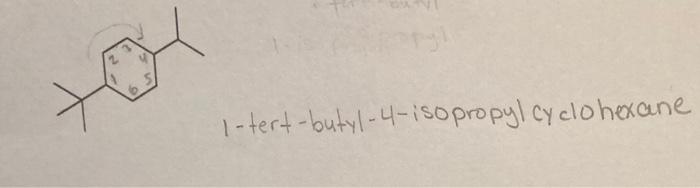 2 3 4
1 6 5
1-tert-butyl-4-isopropylcyclohexane